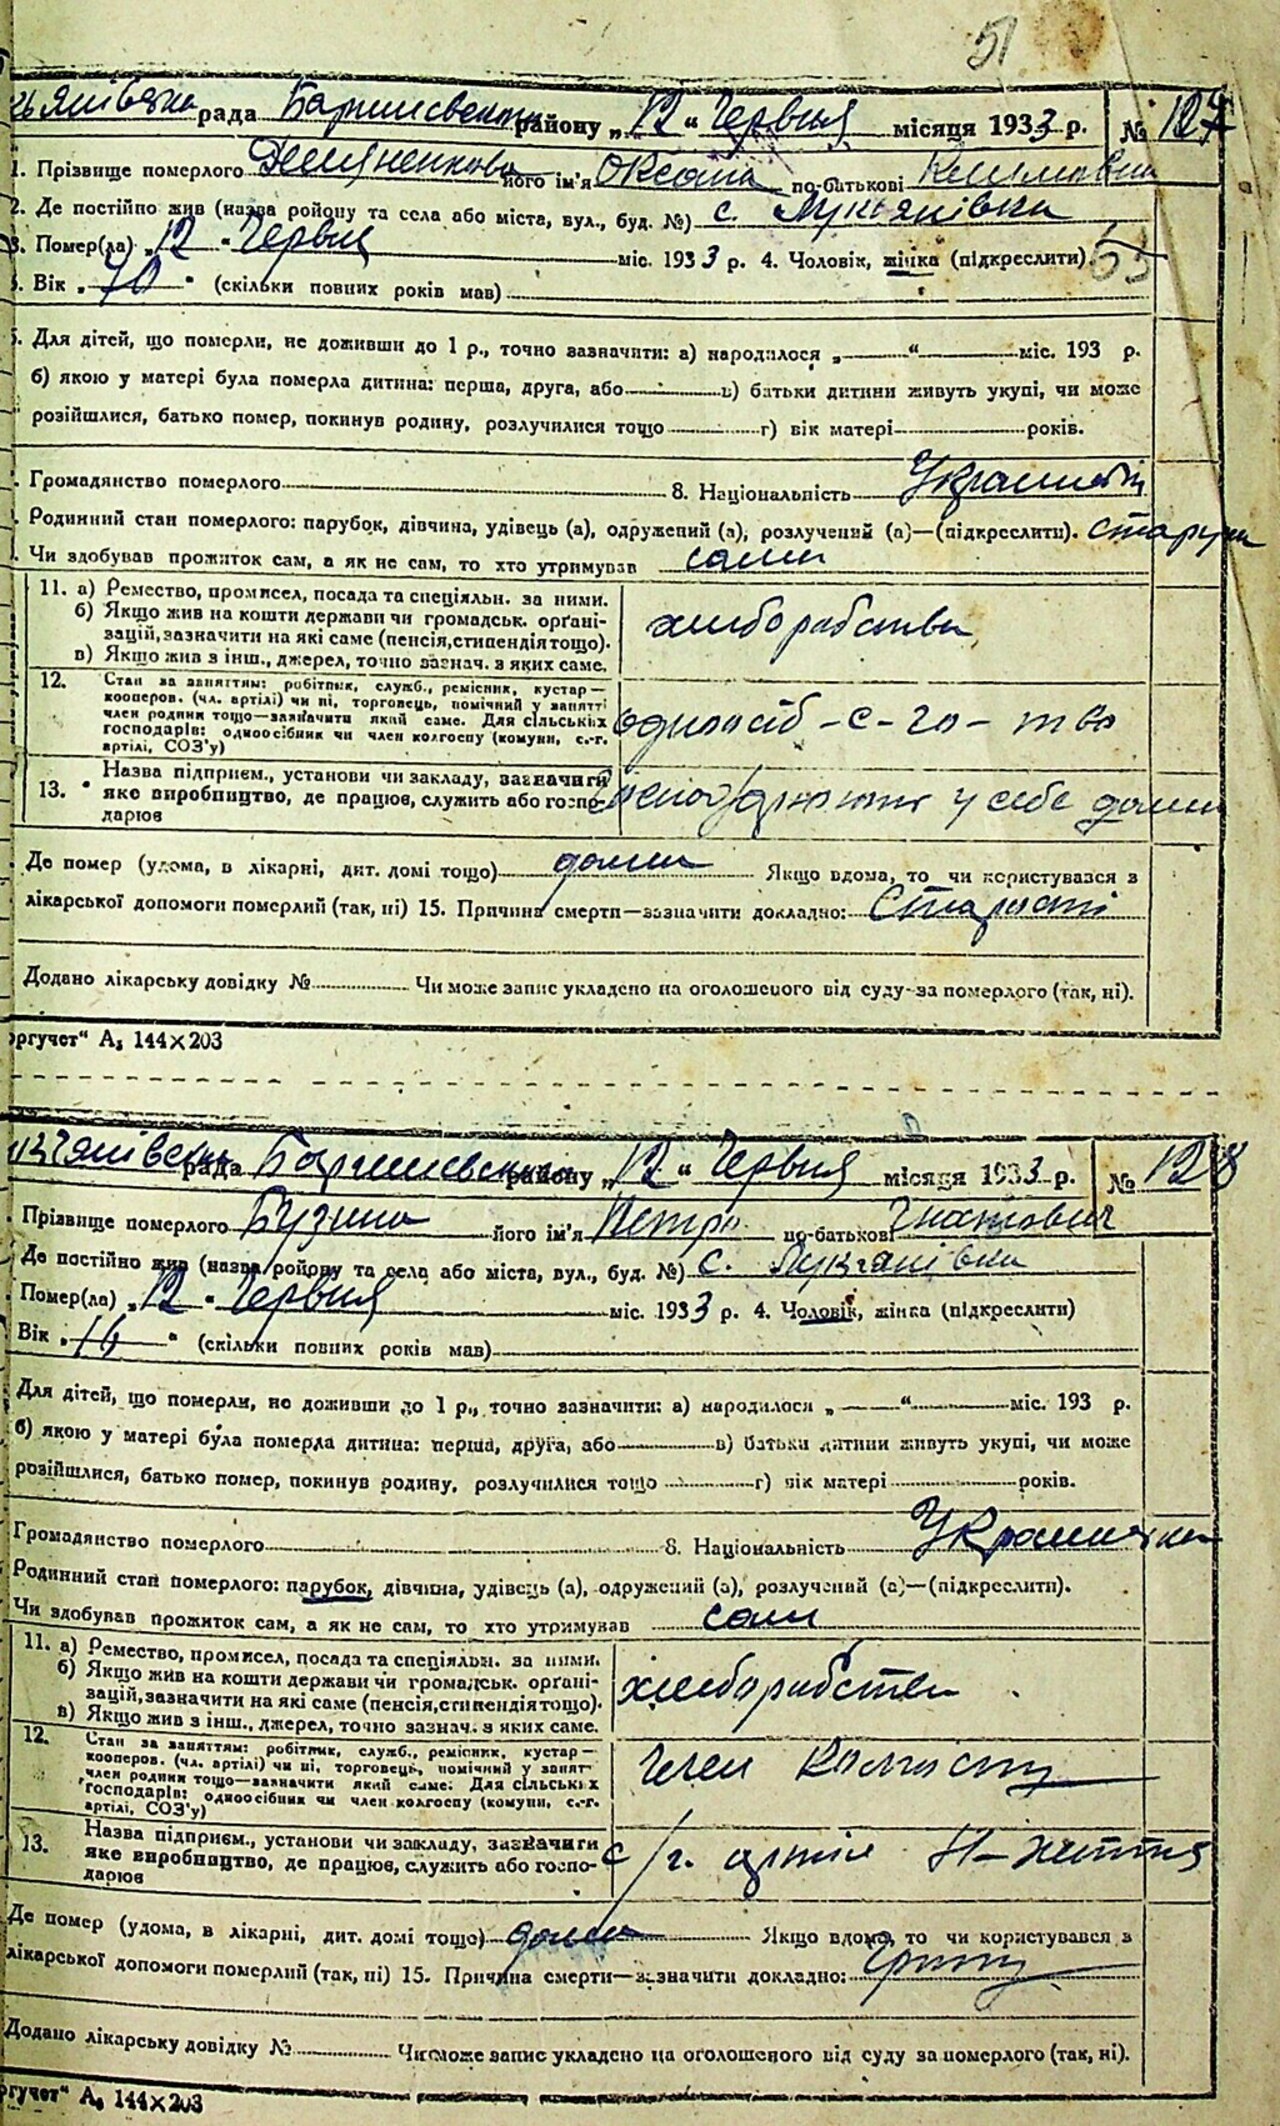 51
рада Баришевського району „12“ Червня місяця 1933 р. № 127
1. Прізвище померлого його ім'я Оксана по-батькові
2. Де постійно жив (назва ройону та села або міста, вул., буд. №) с. Лукянівка
3. Помер(ла) „12“ Червня міс. 1933 р. 4. Чоловік, жінка (підкреслити)
5. Вік „70“ (скільки повних років мав)
6. Для дітей, що померли, не доживши до 1 р., точно зазначити: а) народилося „ “ міс. 193 р.
б) якою у матері була померла дитина: перша, друга, або в) батьки дитини живуть укупі, чи може
розійшлися, батько помер, покинув родину, розлучилися тощо г) вік матері років.
Громадянство померлого 8. Національність
Родинний стан померлого: парубок, дівчина, удівець (а), одружений (а), розлучений (а)—(підкреслити).
Чи здобував прожиток сам, а як не сам, то хто утримував сама
11. а) Ремество, промисел, посада та спеціяльн. за ними.
б) Якщо жив на кошти держави чи громадськ. орґані-
зацій, зазначити на які саме (пенсія, стипендія тощо).
в) Якщо жив з інш., джерел, точно зазнач. з яких саме.
хліборобство
12. Стан за заняттям: робітник, служб., ремісник, кустар—
кооперов. (чл. артілі) чи ні, торговець, помічний у занятті
член родини тощо—зазначити який саме. Для сільських
господарів: одноосібник чи член колгоспу (комуни, с.-г.
артілі, СОЗ'у)
одноосіб - с - го - тво
13. Назва підприєм., установи чи закладу, зазначити
яке виробництво, де працює, служить або госпо-
дарює
у себе дома
Де помер (удома, в лікарні, дит. домі тощо) дома Якщо вдома, то чи користувався з
лікарської допомоги померлий (так, ні) 15. Причина смерти—зазначити докладно: Старості
Додано лікарську довідку № Чи може запис укладено на оголошеного від суду за померлого (так, ні).
оргучет“ А₅ 144×203
рада Баришевського району „12“ Червня місяця 1933 р. № 128
Прізвище померлого Бузина його ім'я Петро по-батькові Гнатович
Де постійно жив (назва ройону та села або міста, вул., буд. №) с. Лукянівка
Помер(ла) „12“ Червня міс. 1933 р. 4. Чоловік, жінка (підкреслити)
Вік „16“ (скільки повних років мав)
Для дітей, що померли, не доживши до 1 р., точно зазначити: а) народилося „ “ міс. 193 р.
б) якою у матері була померла дитина: перша, друга, або в) батьки дитини живуть укупі, чи може
розійшлися, батько помер, покинув родину, розлучилися тощо г) вік матері років.
Громадянство померлого 8. Національність
Родинний стан померлого: парубок, дівчина, удівець (а), одружений (а), розлучений (а)—(підкреслити).
Чи здобував прожиток сам, а як не сам, то хто утримував сам
11. а) Ремество, промисел, посада та спеціяльн. за ними.
б) Якщо жив на кошти держави чи громадськ. орґані-
зацій, зазначити на які саме (пенсія, стипендія тощо).
в) Якщо жив з інш., джерел, точно зазнач. з яких саме.
хліборобство
12. Стан за заняттям: робітник, служб., ремісник, кустар—
кооперов. (чл. артілі) чи ні, торговець, помічний у занят-
член родини тощо—зазначити який саме: Для сільських
господарів: одноосібник чи член колгоспу (комуни, с.-г.
артілі, СОЗ'у)
член колгоспу
13. Назва підприєм., установи чи закладу, зазначити
яке виробництво, де працює, служить або госпо-
дарює
с/г. артіль Н-життя
Де помер (удома, в лікарні, дит. домі тощо) дома Якщо вдома, то чи користувався з
лікарської допомоги померлий (так, ні) 15. Причина смерти—зазначити докладно:
Додано лікарську довідку № Чи може запис укладено на оголошеного від суду за померлого (так, ні).
ргучет“ А₅ 144×203